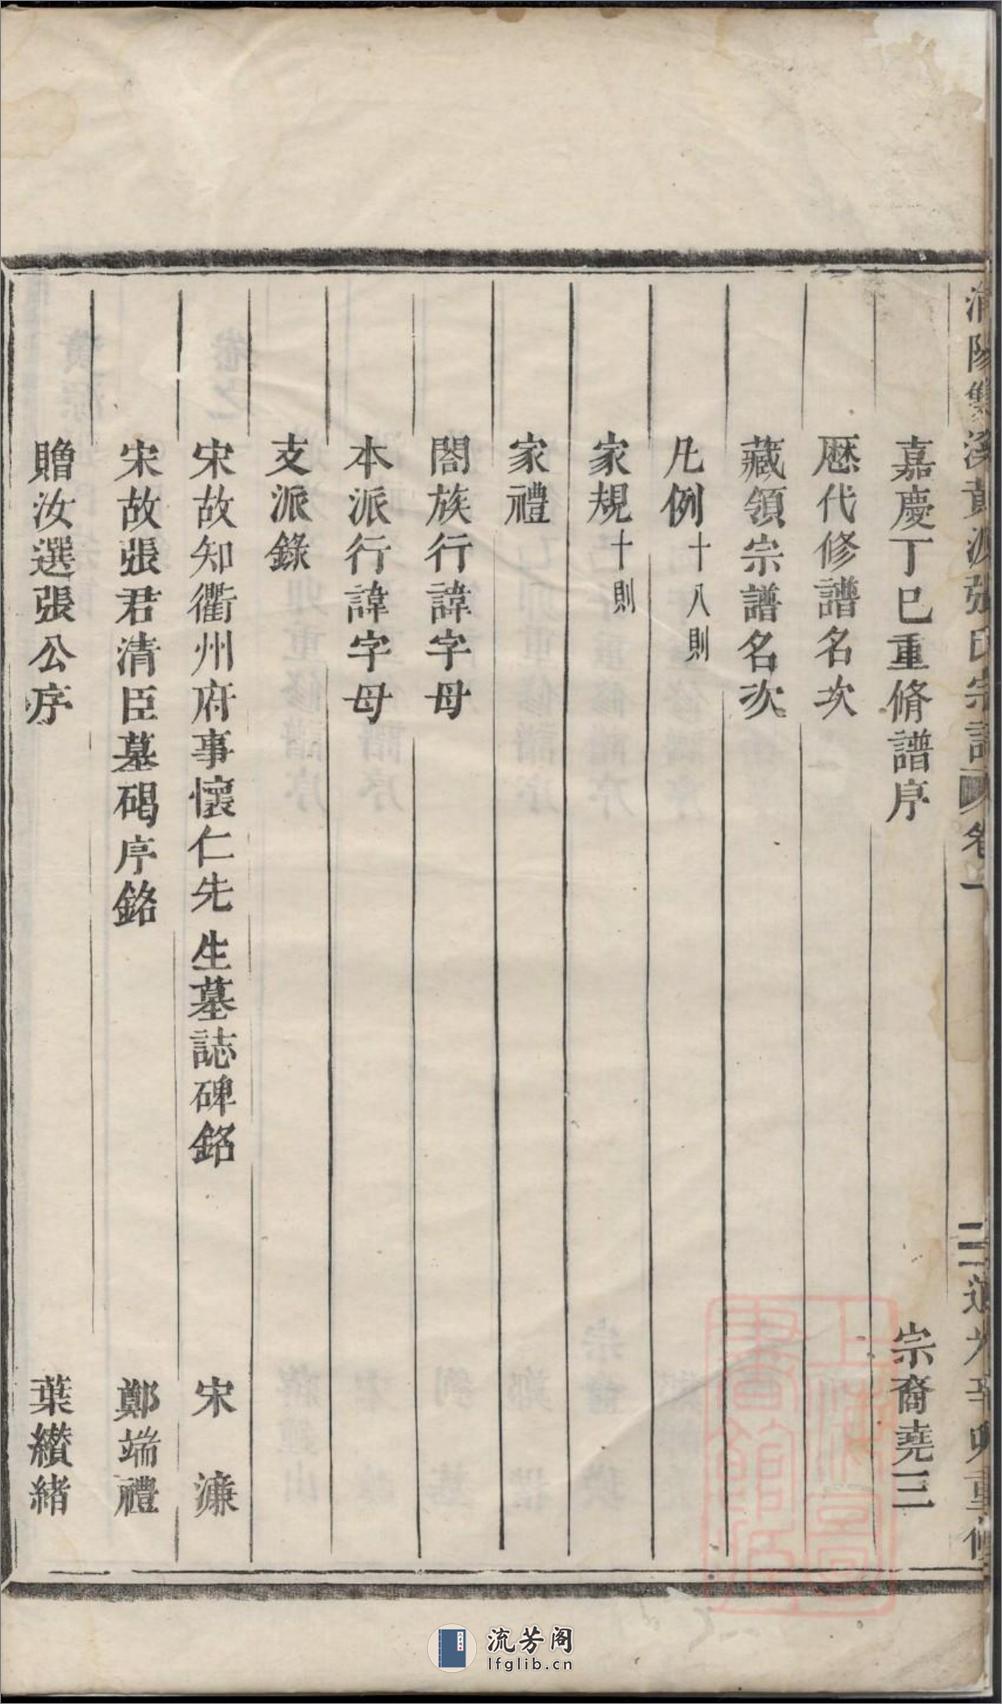 浦陽雙溪黄源張氏宗譜 卷一 二 道光辛卯重修
嘉慶丁巳重脩譜序 宗裔堯三
歷代修譜名次
藏領宗譜名次
凡例十八則
家規十則
家禮
閤族行諱字母
本派行諱字母
支派錄
宋故知衢州府事懷仁先生墓誌碑銘 宋濂
宋故張君清臣墓碣序銘 鄭端禮
贈汝選張公序 葉纉緒
流芳阁
lfglib.cn